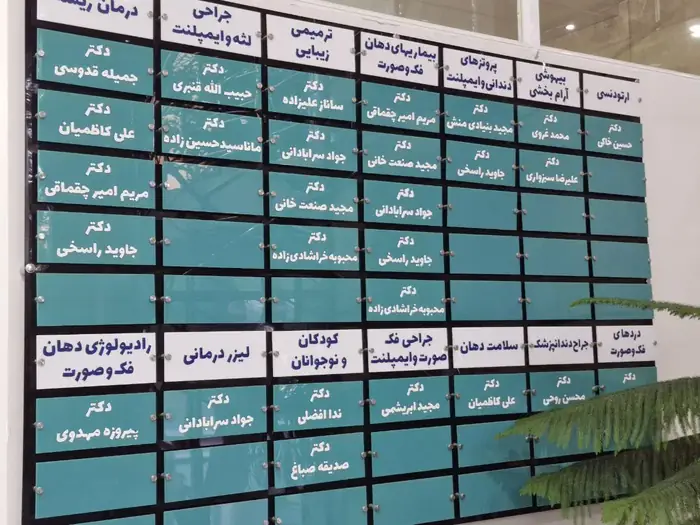 ارتودنسی
دکتر
حسین خاکی
بیهوشی
آرام بخشی
دکتر
محمد غروی
دکتر
علیرضا سبزواری
پروتزهای
دندانی و ایمپلنت
دکتر
مجید بنیادی منش
دکتر
جاوید راسخی
بیماریهای دهان
فک وصورت
دکتر
مریم امیر چقماقی
دکتر
مجید صنعت خانی
دکتر
جواد سرابادانی
دکتر
جاوید راسخی
دکتر
محبوبه خراشادی زاده
ترمیمی
زیبایی
دکتر
ساناز علیزاده
دکتر
جواد سرابادانی
دکتر
مجید صنعت خانی
دکتر
محبوبه خراشادی زاده
جراحی
لثه و ایمپلنت
دکتر
حبیب الله قنبری
دکتر
مانا سید حسین زاده
درمان
دکتر
جمیله قدوسی
دکتر
علی کاظمیان
دکتر
مریم امیر چقماقی
دکتر
جاوید راسخی
دردهای
فک وصورت
دکتر
جراح دندانپزشک
دکتر
محسن روحی
سلامت دهان
دکتر
علی کاظمیان
جراحی فک
صورت وایمپلنت
دکتر
مجید ابریشمی
کودکان
و نوجوانان
دکتر
ندا افضلی
دکتر
صدیقه صباغ
لیزر درمانی
دکتر
جواد سرابادانی
رادیولوژی دهان
فک و صورت
دکتر
پیروزه مهدوی